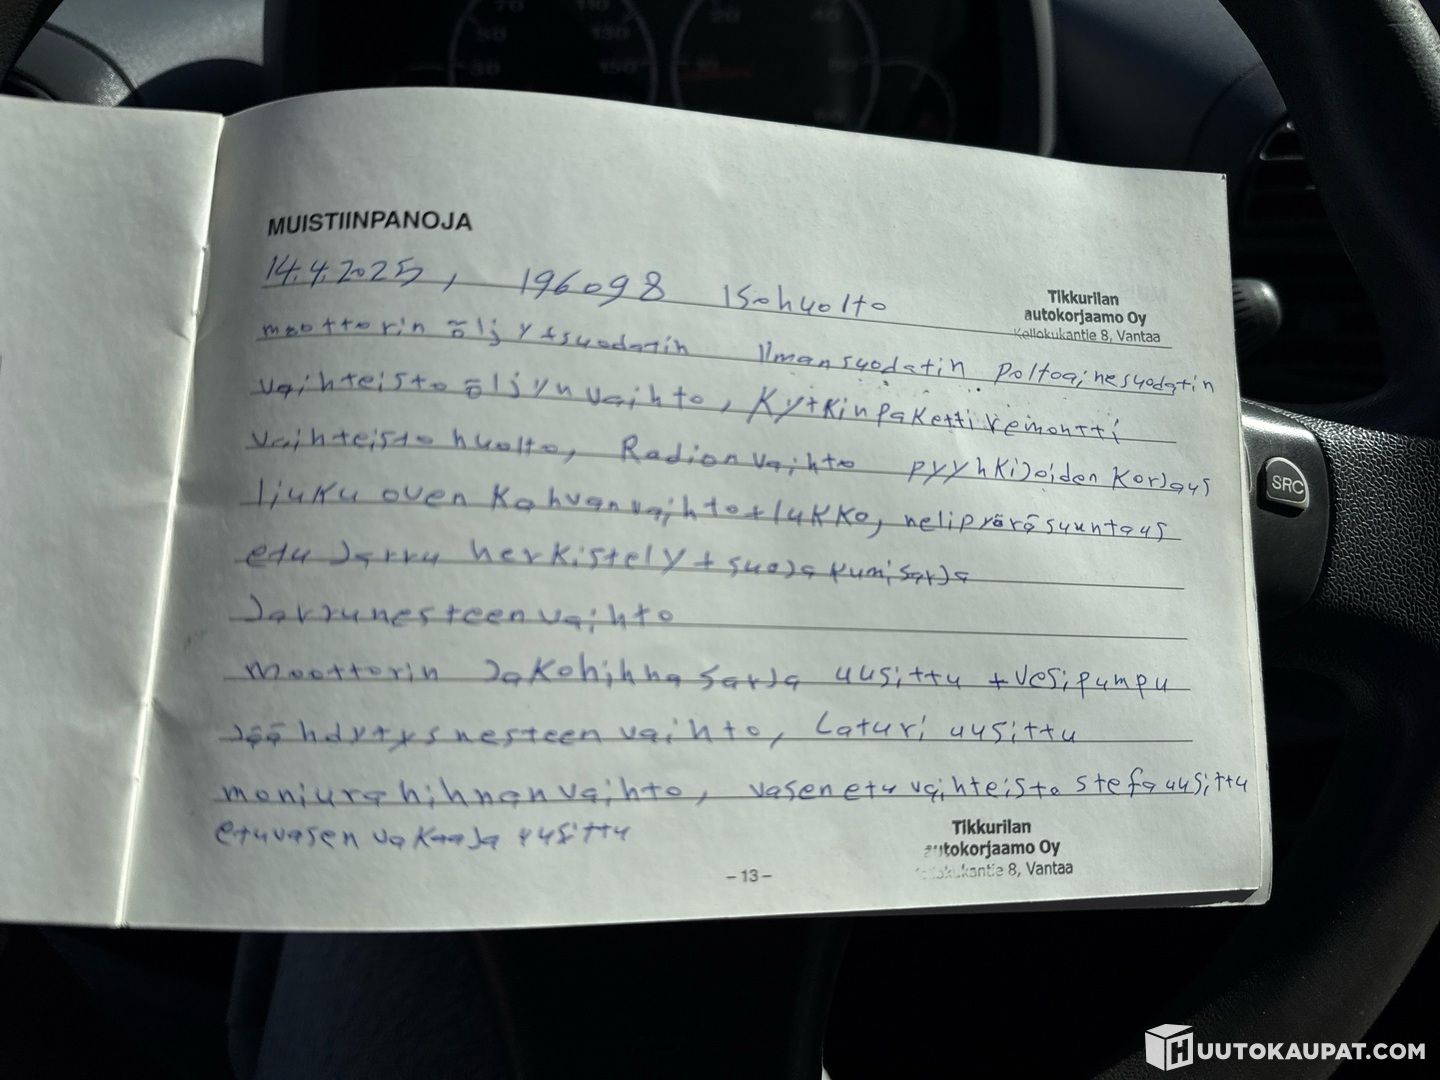 MUISTIINPANOJA
14.4.2025, 196098 Isohuolto
Tikkurilan
autokorjaamo Oy
Kellokukantie 8, Vantaa
moottorin öljy+suodatin Ilmansuodatin poltoainesuodatin
vaihteisto öljyn vaihto, Kytkinpaketti remontti
vaihteisto huolto, Radion vaihto pyyhkijoiden korjaus
liuku oven Kahvan vaihto+lukko, nelipyöräsuuntaus
etu Jarru herkistely + suoja kumisarja
Jarrunesteen vaihto
moottorin Jakohihna sarja uusittu + vesipumpu
Jäähdytysnesteen vaihto, Laturi uusittu
moniura hihnan vaihto, vasen etu vaihteisto stefa uusittu
etuvasen vakaaja uusittu
Tikkurilan
autokorjaamo Oy
Kellokukantie 8, Vantaa
– 13 –
SRC
HUUTOKAUPAT.COM